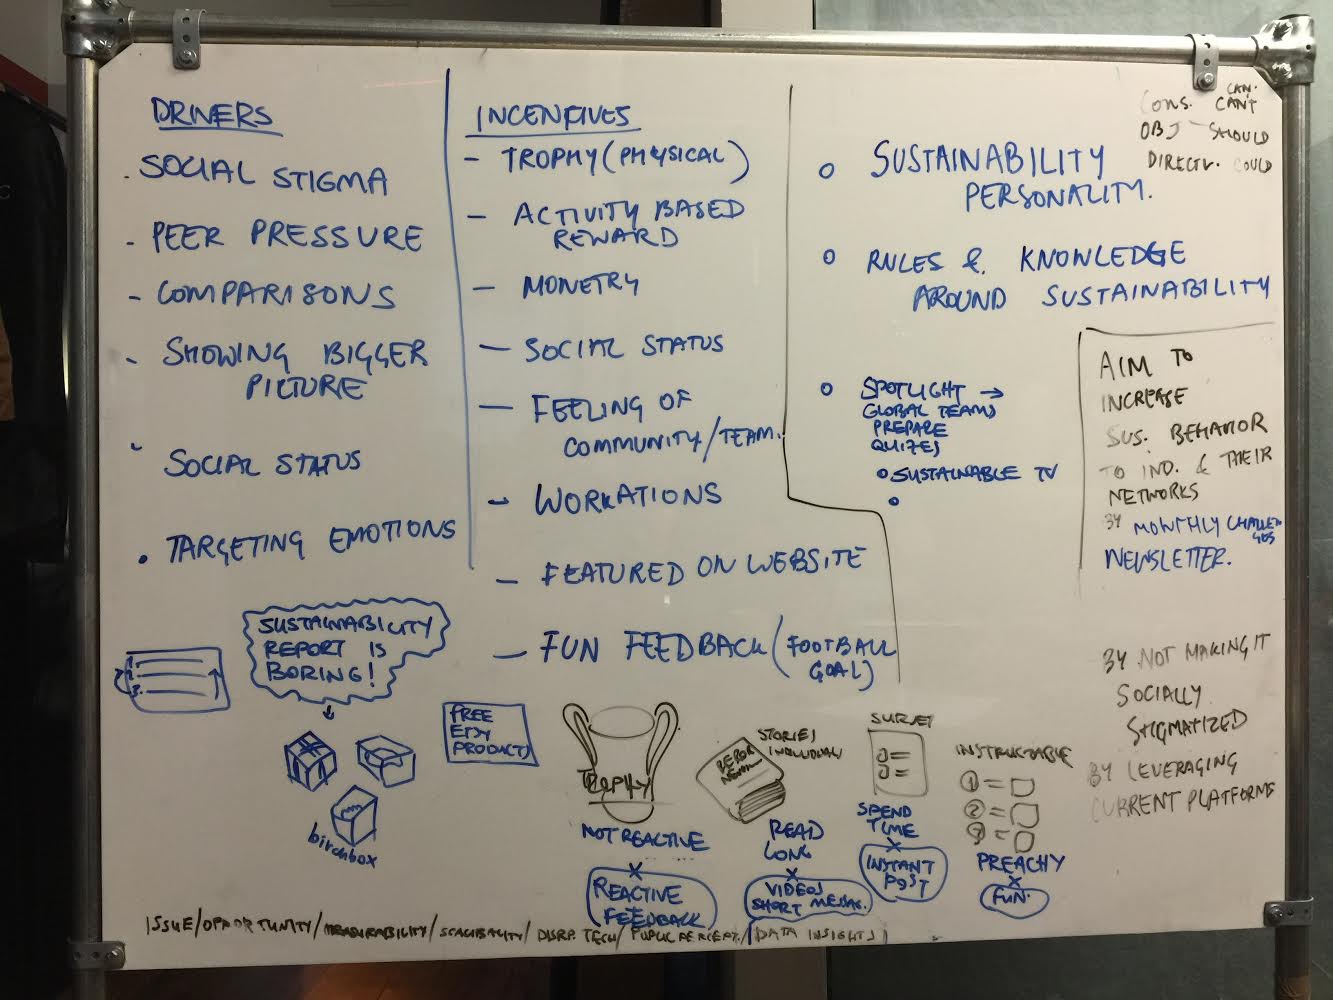 DRIVERS
. SOCIAL STIGMA
- PEER PRESSURE
- COMPARISONS
- SHOWING BIGGER
PICTURE
SOCIAL STATUS
• TARGETING EMOTIONS
INCENTIVES
- TROPHY (PHYSICAL)
- ACTIVITY BASED
REWARD
- MONETRY
- SOCIAL STATUS
- FEELING OF
COMMUNITY/TEAM.
- WORKATIONS
- FEATURED ON WEBSITE
- FUN FEEDBACK (FOOTBALL
GOAL)
CONS. CAN.
CAN'T
OBJ - SHOULD
DIRECTV. COULD
○ SUSTAINABILITY
PERSONALITY.
○ RULES & KNOWLEDGE
AROUND SUSTAINABILITY
○ SPOTLIGHT →
GLOBAL TEAMS
PREPARE
QUIZES
○ SUSTAINABLE TV
○
AIM TO
INCREASE
SUS. BEHAVIOR
TO IND. & THEIR
NETWORKS
BY MONTHLY CHALLEN
GES
NEWSLETTER.
BY NOT MAKING IT
SOCIALLY
STIGMATIZED
BY LEVERAGING
CURRENT PLATFORMS
SUSTAINABILITY
REPORT IS
BORING!
birchbox
FREE
PRODUCTS
TROPHY
NOT REACTIVE
×
REACTIVE
FEEDBACK
STORIES
INDIVIDUAL
READ
LONG
×
VIDEOS
SHORT MESSAG.
SURVEY
SPEND
TIME
×
INSTANT
POST
INSTRUCTABLE
1 =
2 =
3 =
PREACHY
×
FUN.
ISSUE/OPPORTUNITY/MEASURABILITY/SCALIBALITY/DISRP. TECH/PUBLIC PERCEPT./DATA INSIGHTS/